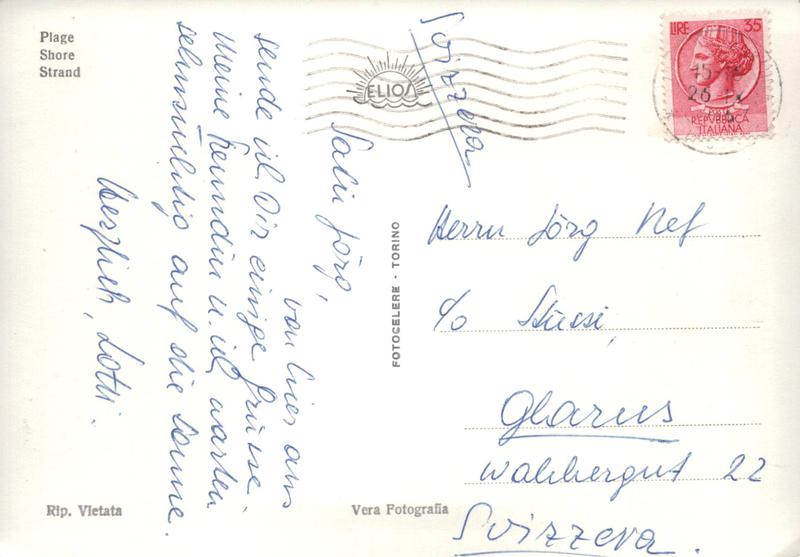 Plage
Shore
Strand
Salü Jörg,
von hier aus
sende ich Dir einige Grüsse.
Meine Freundin u. ich warten
sehnsüchtig auf die Sonne.
Herzlich, Lotti.
FOTOCELERE - TORINO
Rip. Vietata
Vera Fotografia
ELIOS
LIRE 35
REPVBBLICA
ITALIANA
15
26
Svizzera
Herrn Jörg Nef
c/o Stüssi,
Glarus
Waldbergut 22
Svizzera.